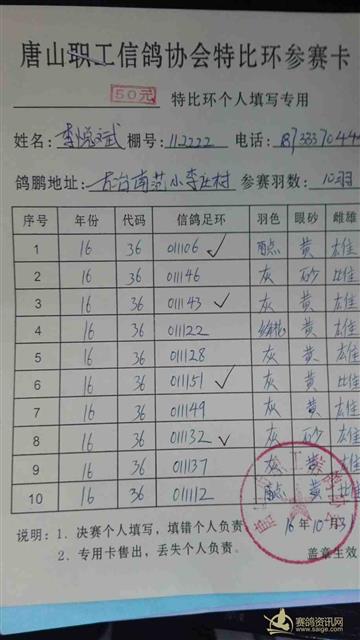 唐山职工信鸽协会特比环参赛卡
50元 特比环个人填写专用
姓名: 李悦斌 棚号: 112222 电话:
鸽鹏地址: 古冶南范小李庄村 参赛羽数: 10羽
序号 年份 代码 信鸽足环 羽色 眼砂 雌雄
1 16 36 011106 ✓ 雨点 黄 雄
2 16 36 011146 灰 砂 雌
3 16 36 011143 ✓ 灰 黄 雄
4 16 36 011122 黄 雄
5 16 36 011128 灰 黄 雄
6 16 36 011151 ✓ 灰 黄 雌
7 16 36 011149 灰 黄 雄
8 16 36 011132 ✓ 灰 砂 雄
9 16 36 011137 灰 黄 雄
10 16 36 011112 雨点 黄 雌
说明: 1. 决赛个人填写,填错个人负责。 16年10月3
2. 专用卡售出,丢失个人负责。 盖章生效
赛鸽资讯网
www.saige.com